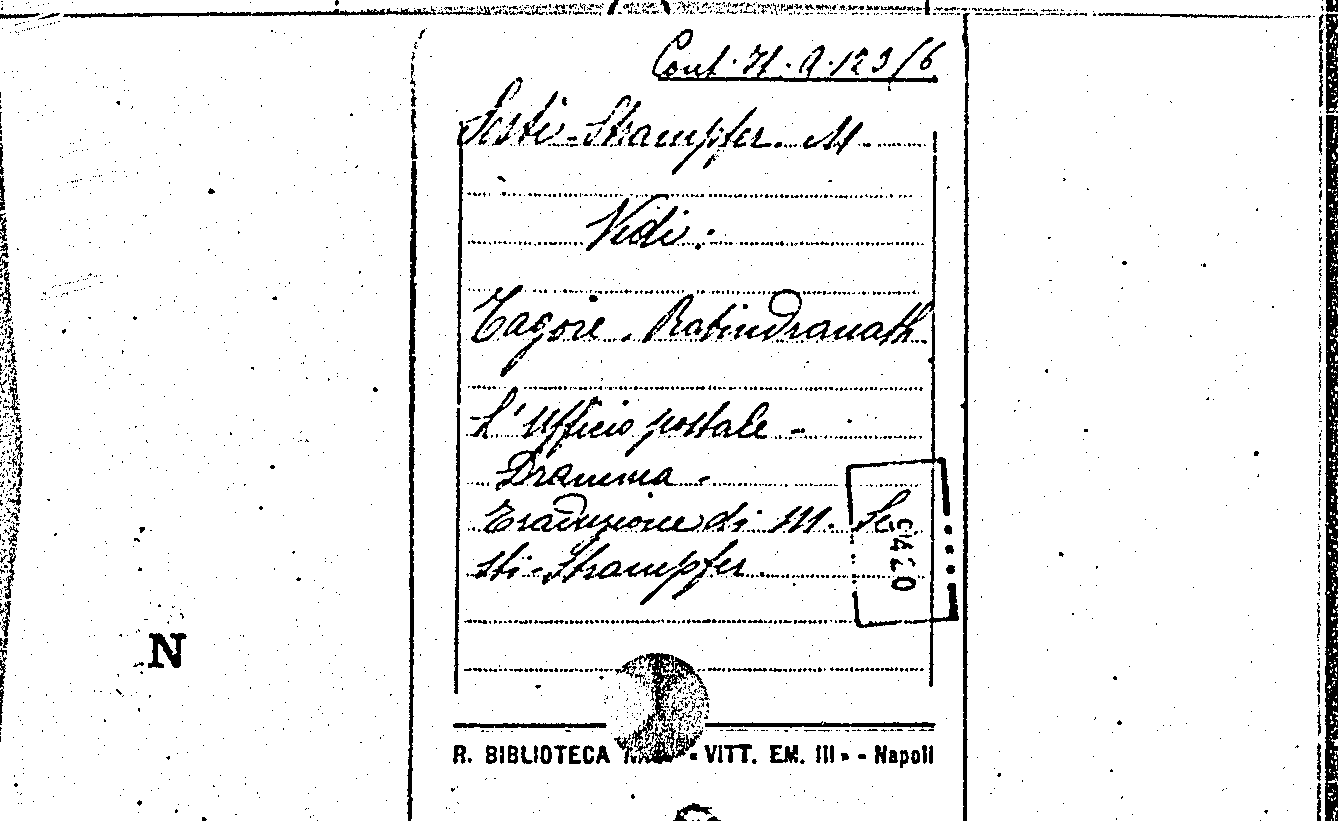 Cont. H. A. 123/6
Sesti-Strampfer. M.
Vedi:
Tagore. Rabindranath
L'Ufficio postale -
Dramma.
Traduzione di M. Se
sti-Strampfer.
N
R. BIBLIOTECA « VITT. EM. III » - Napoli